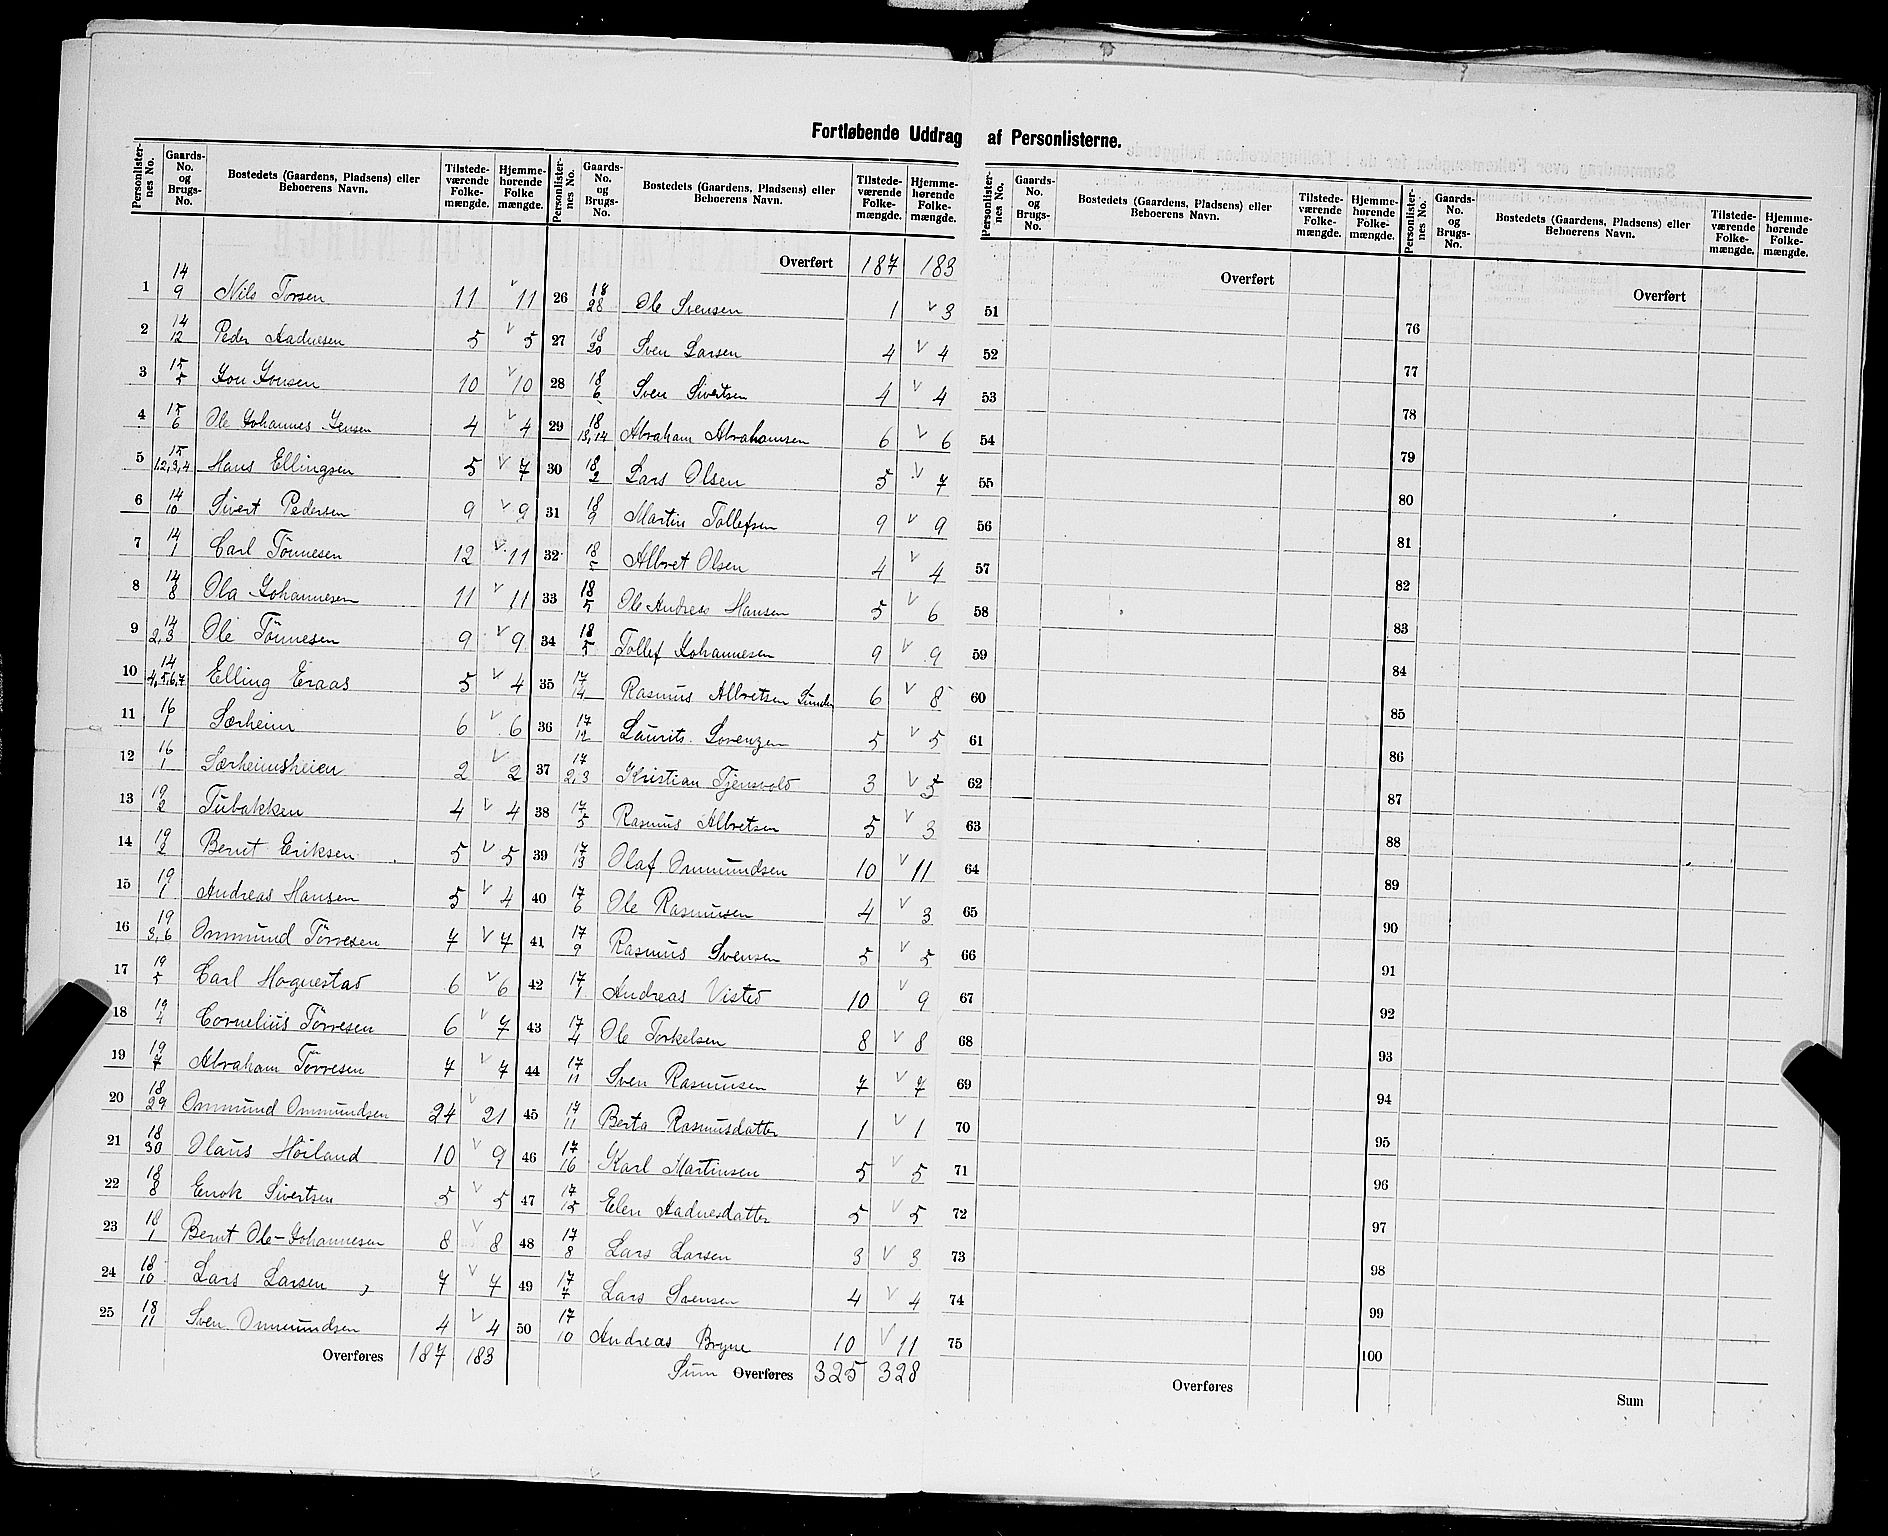 Fortløbende Uddrag af Personlisterne.
Personlisternes No. Gaards-No. og Brugs-No. Bostedets (Gaardens, Pladsens) eller Beboerens Navn. Tilstedeværende Folkemængde. Hjemmehørende Folkemængde.
1 14/9 Nils Torsen 11 v 11
2 14/12 Peder Aadnesen 5 v 5
3 15/5 Jon Jonsen 10 v 10
4 15/6 Ole Johannes Jensen 4 v 4
5 15/1,2,3,4 Hans Ellingsen 5 v 7
6 14/10 Sivert Pedersen 9 v 9
7 14/1 Carl Tønnesen 12 v 11
8 14/8 Ola Johannesen 11 v 11
9 14/2,3 Ole Tønnesen 9 v 9
10 14/4,5,6,7 Elling Eraas 5 v 4
11 16/1 Særheim 6 v 6
12 16/1 Særheimsheien 2 v 2
13 19/2 Tubakken 4 v 4
14 19/2 Bernt Eriksen 5 v 5
15 19/1 Andreas Hansen 5 v 4
16 19/3,6 Ommund Tørresen 7 v 7
17 19/5 Carl Hognestad 6 v 6
18 19/4 Cornelius Tørresen 6 v 7
19 19/7 Abraham Tørresen 7 v 7
20 18/29 Ommund Ommundsen 24 v 21
21 18/30 Olaus Høiland 10 v 9
22 18/8 Enok Sivertsen 5 v 5
23 18/1 Bernt Ole-Johannesen 8 v 8
24 18/10 Lars Larsen 7 v 7
25 18/11 Sven Ommundsen 4 v 4
Overføres 187 183
Personlisternes No. Gaards-No. og Brugs-No. Bostedets (Gaardens, Pladsens) eller Beboerens Navn. Tilstedeværende Folkemængde. Hjemmehørende Folkemængde.
Overført 187 183
26 18/28 Ole Svensen 1 v 3
27 18/20 Sven Larsen 4 v 4
28 18/6 Sven Sivertsen 4 v 4
29 18/13,14 Abraham Abrahamsen 6 v 6
30 18/2 Lars Olsen 5 v 7
31 18/9 Martin Tollefsen 9 v 9
32 18/5 Albret Olsen 4 v 4
33 18/5 Ole Andreas Hansen 5 v 6
34 18/5 Tollef Johannesen 9 v 9
35 17/14 Rasmus Albretsen 6 v 8
36 17/12 Laurits Lorenzen 5 v 5
37 17/2,3 Kristian Tjensvold 3 v 5
38 17/5 Rasmus Albretsen 5 v 3
39 17/13 Olaf Ommundsen 10 v 11
40 17/6 Ole Rasmusen 4 v 3
41 17/9 Rasmus Svensen 5 v 5
42 17/1 Andreas Visted 10 v 9
43 17/4 Ole Torkelsen 8 v 8
44 17/11 Sven Rasmusen 7 v 7
45 17/11 Berta Rasmusdatter 1 v 1
46 17/16 Karl Martinsen 5 v 5
47 17/15 Elen Aadnesdatter 5 v 5
48 17/8 Lars Larsen 3 v 3
49 17/7 Lars Svensen 4 v 4
50 17/10 Andreas Bryne 10 v 11
Sum Overføres 325 328
Personlisternes No. Gaards-No. og Brugs-No. Bostedets (Gaardens, Pladsens) eller Beboerens Navn. Tilstedeværende Folkemængde. Hjemmehørende Folkemængde.
Overført
51
52
53
54
55
56
57
58
59
60
61
62
63
64
65
66
67
68
69
70
71
72
73
74
75
Overføres
Personlisternes No. Gaards-No. og Brugs-No. Bostedets (Gaardens, Pladsens) eller Beboerens Navn. Tilstedeværende Folkemængde. Hjemmehørende Folkemængde.
Overført
76
77
78
79
80
81
82
83
84
85
86
87
88
89
90
91
92
93
94
95
96
97
98
99
100
Sum